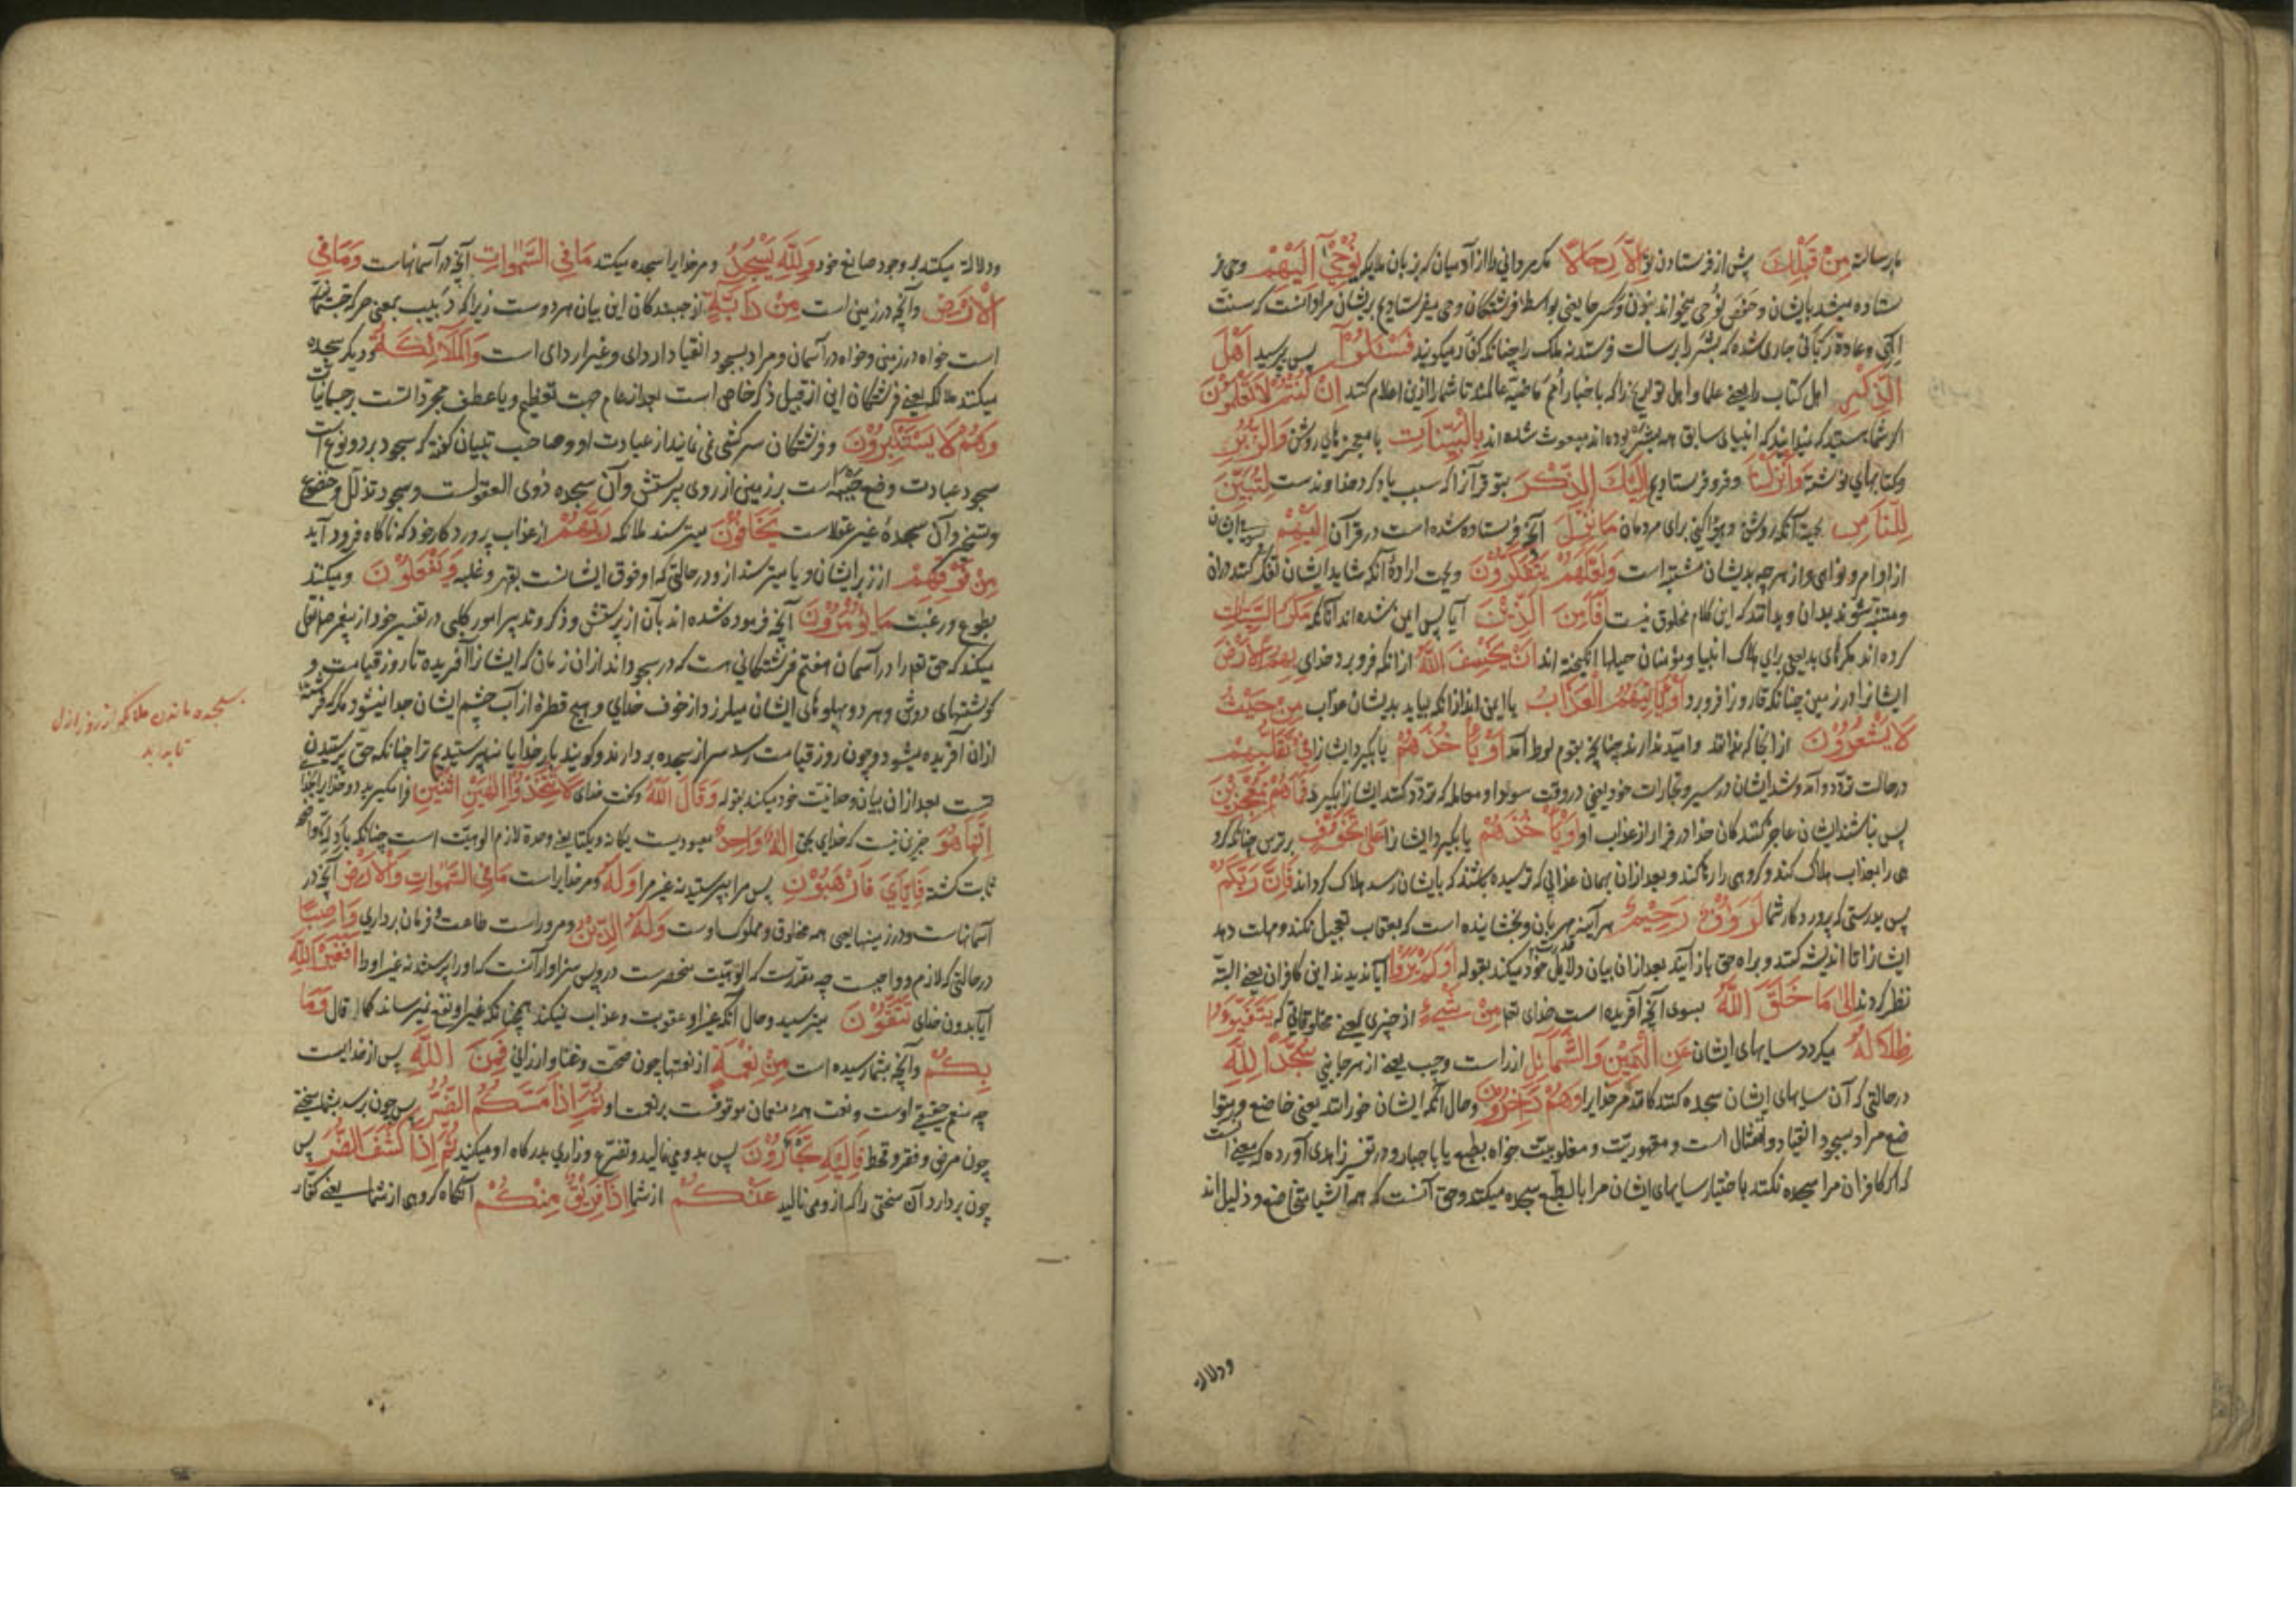 برسالة مِنْ قَبْلِكَ پیش از فرستادن تو اِلَّا رِجَالًا مکر مردانی را از آدمیان که بزبان ملایکه نُوحِیٓ اِلَیْهِمْ وحی فر
ستاده میشد بایشان و حفص نُوحی میخواند بنون و کسر حا یعنی بواسطهٔ فرشتکان وحی میفرستادیم بریشان مراد انست که سنت
الهی و عادة ربانی جاری شده که بشر را برسالت فرستد نه ملک را چنانکه کفار میکویند فَسْئَلُوٓا پس پرسید اَهْلَ
الذِّکْرِ اهل کتاب را یعنی علما و اهل تواریخ را که باخبار امم ماضیه عالمند تا شما را ازین اعلام کنند اِنْ کُنْتُمْ لَا تَعْلَمُونَ
اکر شما هستید که نمیدانید که انبیای سابق همه بشر بوده اند مبعوث شده اند بِالْبَیِّنَاتِ با معجزهای روشن وَالزُّبُرِ
و کتابهای نوشته وَاَنْزَلْنَا و فرو فرستادیم اِلَیْکَ الذِّکْرَ بتو قرآنرا که سبب یاد کرد خداوندست لِتُبَیِّنَ
لِلنَّاسِ بجهة آنکه روشن و هویدا کنی برای مردمان مَا نُزِّلَ آنچه فرستاده شده است در قرآن اِلَیْهِمْ بسوی ایشان
از اوامر و نواهی و از هر چه بدیشان مشتبه است وَلَعَلَّهُمْ یَتَفَکَّرُونَ و بجهت ارادهٔ آنکه شاید ایشان تفکر کنند در آن
و متنبه شوند بدان و بدانند که این کلام مخلوق نیست اَفَاَمِنَ الَّذِیْنَ آیا پس ایمن شده اند آنانکه مَکَرُوا السَّیِّئَاتِ
کرده اند مکرهای بد یعنی برای هلاک انبیا و مؤمنان حیلها انکیخته اند اَنْ یَخْسِفَ اللّٰهُ از انکه فرو برد خدای بِهِمُ الْاَرْضَ
ایشانرا در زمین چنانکه قارون را فرو برد اَوْ یَاْتِیَهُمُ الْعَذَابُ یا ایمن اند از انکه بیاید بدیشان عذاب مِنْ حَیْثُ
لَا یَشْعُرُوْنَ از انجا که ندانند و امید ندارند چنانچه بقوم لوط آمد اَوْ یَاْخُذَهُمْ یا بکیرد ایشانرا فِیْ تَقَلُّبِهِمْ
در حالت تردد و آمد و شد ایشان در سیر و تجارات خود یعنی در وقت سودا و معامله که تردد کنند ایشانرا بکیرد فَمَاهُمْ بِمُعْجِزِیْنَ
پس نباشند ایشان عاجز کنندکان خدا در فرار از عذاب او اَوْ یَاْخُذَهُمْ یا بکیرد ایشانرا عَلٰی تَخَوُّفٍ بر ترس چنانکه کرو
هی را بعذاب هلاک کند و کروهی را رها کند و بعد از ان بهمان عذابی که ترسیده باشند که بایشان رسد هلاک کرداند فَاِنَّ رَبَّکُمْ
پس بدرستی که پروردکار شما لَرَؤُفٌ رَحِیْمٌ هر آینه مهربان و بخشاینده است که بعقاب تعجیل نکند و مهلت دهد
ایشانرا تا اندیشه کنند و براه حق باز آیند بعد ازان بیان دلایل قدرت خود میکند بقوله اَوَلَمْ یَرَوْا آیا ندیدند این کافران یعنی البته
نظر کردند اِلٰی مَا خَلَقَ اللّٰهُ بسوی آنچه آفریده است خدای تع مِنْ شَیْءٍ از چیزی یعنی مخلوقاتی که یَتَفَیَّؤُا
ظِلَالُهُ میکردد سایهای ایشان عَنِ الْیَمِیْنِ وَالشَّمَآئِلِ از راست و چپ یعنی از هر جانبی سُجَّدًا لِلّٰهِ
در حالتی که آن سایهای ایشان سجده کنندکانند مر خدایرا وَهُمْ دَاخِرُوْنَ و حال آنکه ایشان خورانند یعنی خاضع و متوا
ضع مراد بسجود انقیاد و امتثال است و مقهوریت و مغلوبیت خواه بطبع یا باجبار و در تفسیر زاهدی آورده که معنی انست
که اکر کافران مرا سجده نکنند باختیار سایهای ایشان مرا بالطبع سجده میکنند و حق آنست که همه اشیا خاضع و ذلیل اند
ودلالة
ودلالة میکنند بر وجود صانع خود وَلِلّٰهِ یَسْجُدُ و مر خدایرا سجده میکند مَا فِی السَّمٰوَاتِ آنچه در آسمانهاست وَمَا فِی
الْاَرْضِ و آنچه در زمین است مِنْ دَابَّةٍ از جنبندکان این بیان هر دوست زیرا که دبیب بمعنی حرکة جسمانیه
است خواه در زمین و خواه در آسمان و مراد بسجود انقیاد ارادی و غیر ارادی است وَالْمَلَآئِکَةُ و دیکر سجده
میکنند ملائکه یعنی فرشتکان این از قبیل ذکر خاص است بعد از عام جهت تعظیم و یا عطف مجرداتست بر جسمانیات
وَهُمْ لَا یَسْتَکْبِرُوْنَ و فرشتکان سرکشی نمی نمایند از عبادت او و صاحب تبیان کفته که سجود بر دو نوع است
سجود عبادت وضع جبهه است بر زمین از روی پرستش و آن سجده ذوی العقولست و سجود تذلل و خضوع
و تسخیر و آن سجدهٔ غیر عقلاست یَخَافُوْنَ میترسند ملائکه رَبَّهُمْ از عذاب پروردکار خود که ناکاه فرود آید
مِنْ فَوْقِهِمْ از زبر ایشان و یا میترسند از و در حالتی که او فوق ایشانست بقهر و غلبه وَیَفْعَلُوْنَ و میکنند
بطوع و رغبت مَا یُؤْمَرُوْنَ آنچه فرموده شده اند بآن از پرستش و ذکر و تدبیر امور کلبی در تفسیر خود از پیغمبر ص نقل
میکند که حق تع را در آسمان هفتم فرشتکانی است که در سجود اند از ان زمان که ایشانرا آفریده تا روز قیامت و
کوشتهای دوش و هر دو پهلوهای ایشان میلرزد از خوف خدای و هیچ قطرهٔ از آب چشم ایشان جدا نیشود مکر که فرشتهٔ
ازان آفریده میشود و چون روز قیامت رسد سر از سجده بردارند و کویند بار خدایا نپرستیدیم ترا چنانکه حق پرستیدن
تست بعد ازان بیان وحدانیت خود میکند بقوله وَقَالَ اللّٰهُ و کفت خدای لَا تَتَّخِذُوٓا اِلٰهَیْنِ اثْنَیْنِ فرا مکیرید دو خدایرا
اِنَّمَا هُوَ جزین نیست که خدای بحق اِلٰهٌ وَاحِدٌ معبودیست یکانه و یکتا یعنی وحدة لازم الوهیت است چنانکه بادلهٔ واضحه
ثابت کشته فَاِیَّایَ فَارْهَبُوْنِ پس مرا بپرستید نه غیر مرا وَلَهُ و مر خدایراست مَا فِی السَّمٰوَاتِ وَالْاَرْضِ آنچه در
آسمانهاست و در زمینها یعنی همه مخلوق و مملوک اوست وَلَهُ الدِّیْنُ و مر وراست طاعت و فرمان برداری وَاصِبًا
در حالتی که لازم و واجبست چه مقررست که الوهیت منحصرست در و پس سزاوار آنست که او را پرستند نه غیر او را اَفَغَیْرَ اللّٰهِ
آیا بدون خدای تَتَّقُوْنَ میترسید و حال آنکه غیر او عقوبت و عذاب نیکند همچنانکه غیر او نفع نمیرساند کما قال وَمَا
بِکُمْ و آنچه بشما رسیده است مِنْ نِعْمَةٍ از نعمتها چون صحت و غنا و ارزانی فَمِنَ اللّٰهِ پس از خدایست
چه منعم حقیقی اوست و نعمت همه منعمان موقوفست بر نعمت او ثُمَّ اِذَا مَسَّکُمُ الضُّرُّ پس چون برسد بشما سختی
چون مرض و فقر و قحط فَاِلَیْهِ تَجْاَرُوْنَ پس بدو می نالید و تضرع و زاری بدرکاه او میکنید ثُمَّ اِذَا کَشَفَ الضُّرَّ پس
چون بردارد آن سختی را که از و می نالید عَنْکُمْ از شما اِذَا فَرِیْقٌ مِنْکُمْ آنکاه کروهی از شما یعنی کفار
سجده ماندن ملائکه از روز ازل
تا بابد